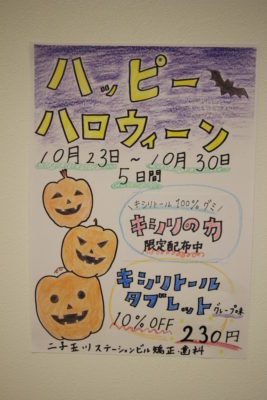 ハッピー
ハロウィーン
10月23日 〜 10月30日
5日間
キシリトール 100% グミ!
キシリの力
限定配布中
キシリトール
タブレット グレープ味
10%OFF 230円
二子玉川 ステーションビル 矯正・歯科